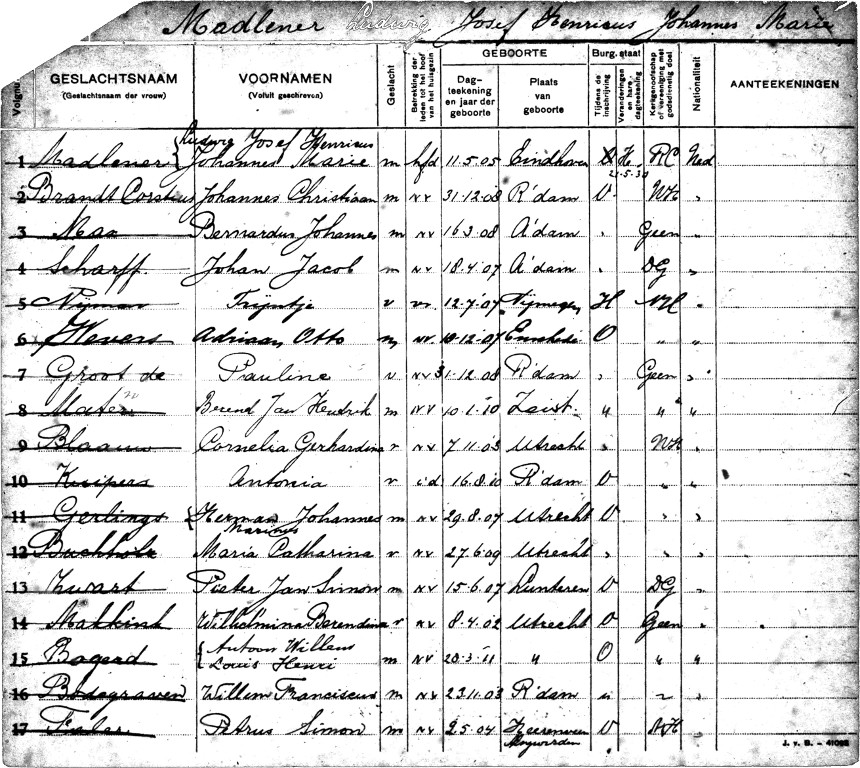 Madlener Ludwig Josef Henricus Johannes Marie
Volgnu
GESLACHTSNAAM
(Geslachtsnaam der vrouw)
VOORNAMEN
(Voluit geschreven)
Geslacht
Betrekking der leden tot het hoof van het huisgezin
GEBOORTE
Dag-teekening en jaar der geboorte
Plaats van geboorte
Burg. staat
Tijdens de inschrijving
Veranderingen en hare dagteekening
Kerkgenootschap of vereeniging met godsdienstig doel
Nationaliteit
AANTEEKENINGEN
Ludwig Josef Henricus
1 Madlener Johannes Marie m hfd 11.5.05 Eindhoven H RC Ned
21-5-30
2 Brandt Corstius Johannes Christiaan m NV 31.12.08 R'dam O NH "
3 Maa Bernardus Johannes m NV 16.3.08 A'dam " Geen "
4 Scharff Johan Jacob m NV 18.4.07 A'dam " DG "
5 Nijman Trijntje v 12.7.07 Nijmegen H NH "
6 Wevers Adriaan Otto m NV 10.12.07 Enschede O " "
7 Groot de Pauline v NV 31.12.08 R'dam " Geen "
8 Berend Jan Hendrik m NV 10.1.10 Zeist " " "
9 Blaauw Cornelia Gerhardina v NV 7.11.03 Utrecht " NH "
10 Kuipers Antonia v id 16.8.10 R'dam O " "
11 Gerlings Herman Johannes m NV 29.8.07 Utrecht O " "
Marinus
12 Buchholz Maria Catharina v NV 27.6.09 Utrecht " " "
13 Zwart Pieter Jan Simon m NV 15.6.07 Lunteren O DG "
14 Makkink Wilhelmina Berendina v NV 8.4.02 Utrecht O Geen "
Antoon Willem
15 Bogerd Louis Henri m NV 20.3.11 " O " "
16 Bodegraven Willem Franciscus m NV 23.11.03 R'dam " " "
17 Petrus Simon m NV 2.5.04 Heerenveen O NH "
J. v. B. – 41098